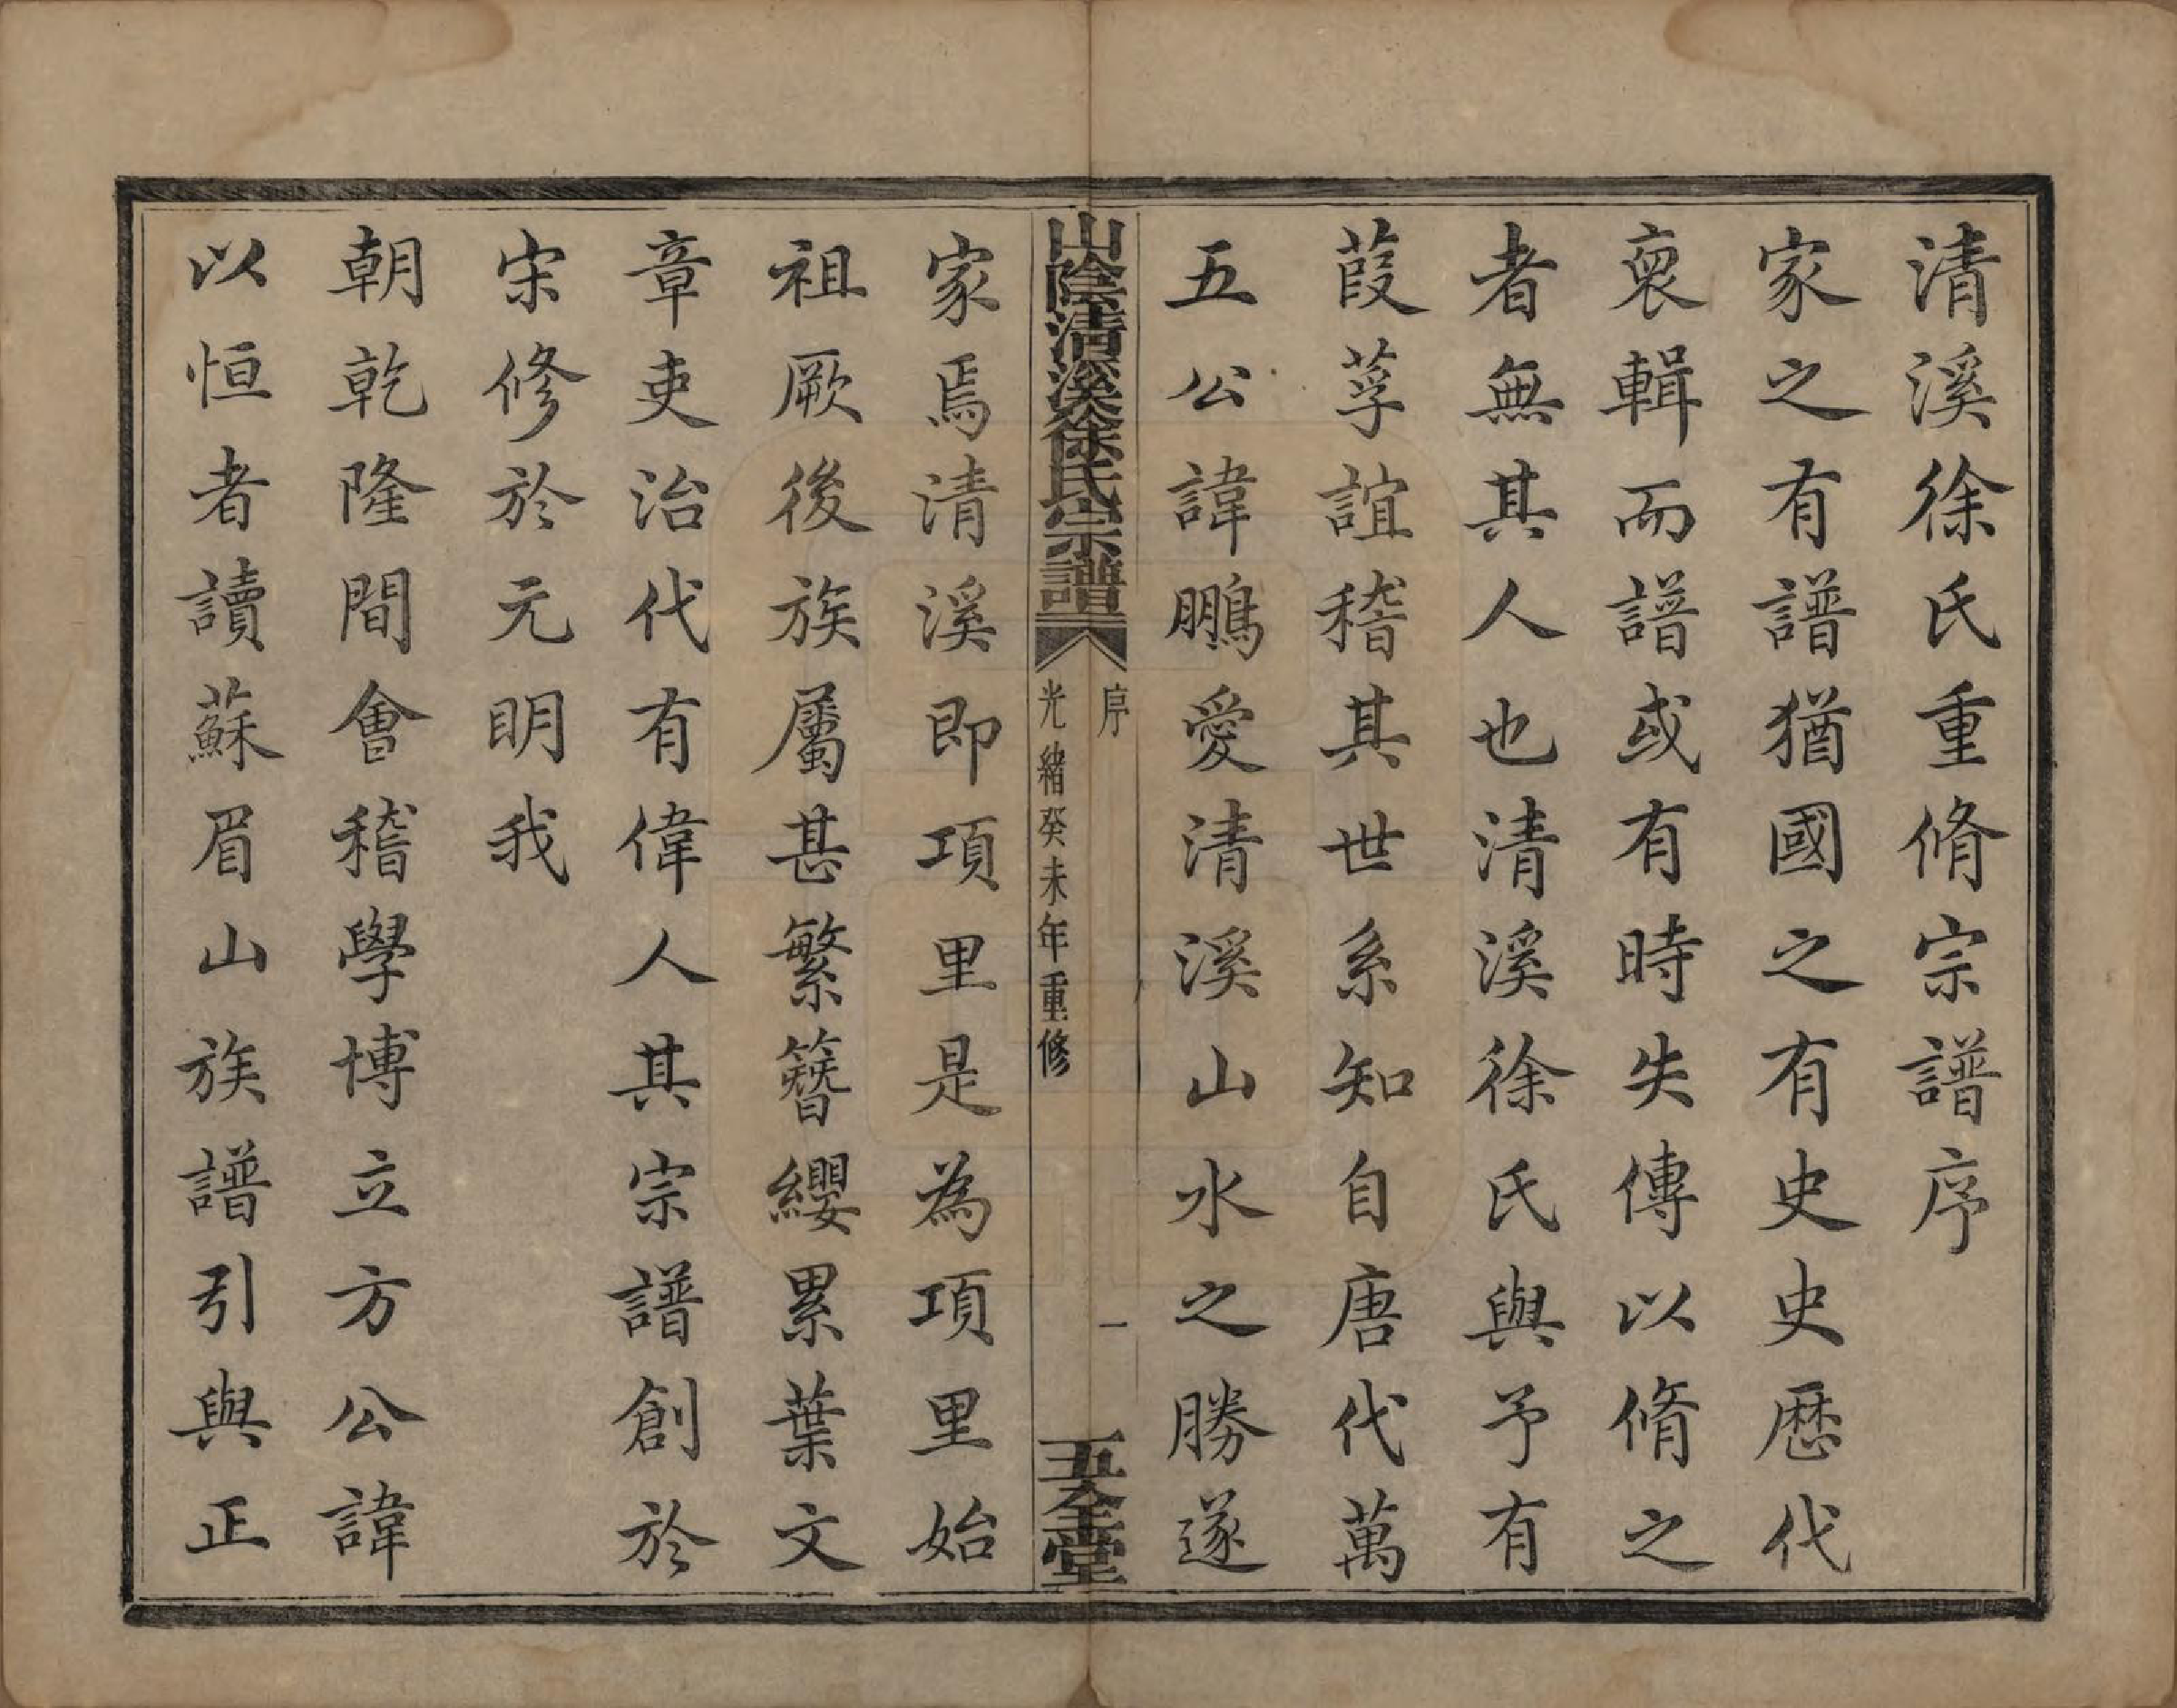 清溪徐氏重脩宗譜序
家之有譜猶國之有史史歷代
裒輯而譜或有時失傳以脩之
者無其人也清溪徐氏與予有
葭莩誼稽其世系知自唐代萬
五公諱鵬愛清溪山水之勝遂
山陰清溪徐氏宗譜
序
一
光緒癸未年重修
五全堂
家焉清溪即項里是為項里始
祖厥後族屬甚繁簪纓累葉文
章吏治代有偉人其宗譜創於
宋修於元明我
朝乾隆間會稽學博立方公諱
以恒者讀蘇眉山族譜引與正